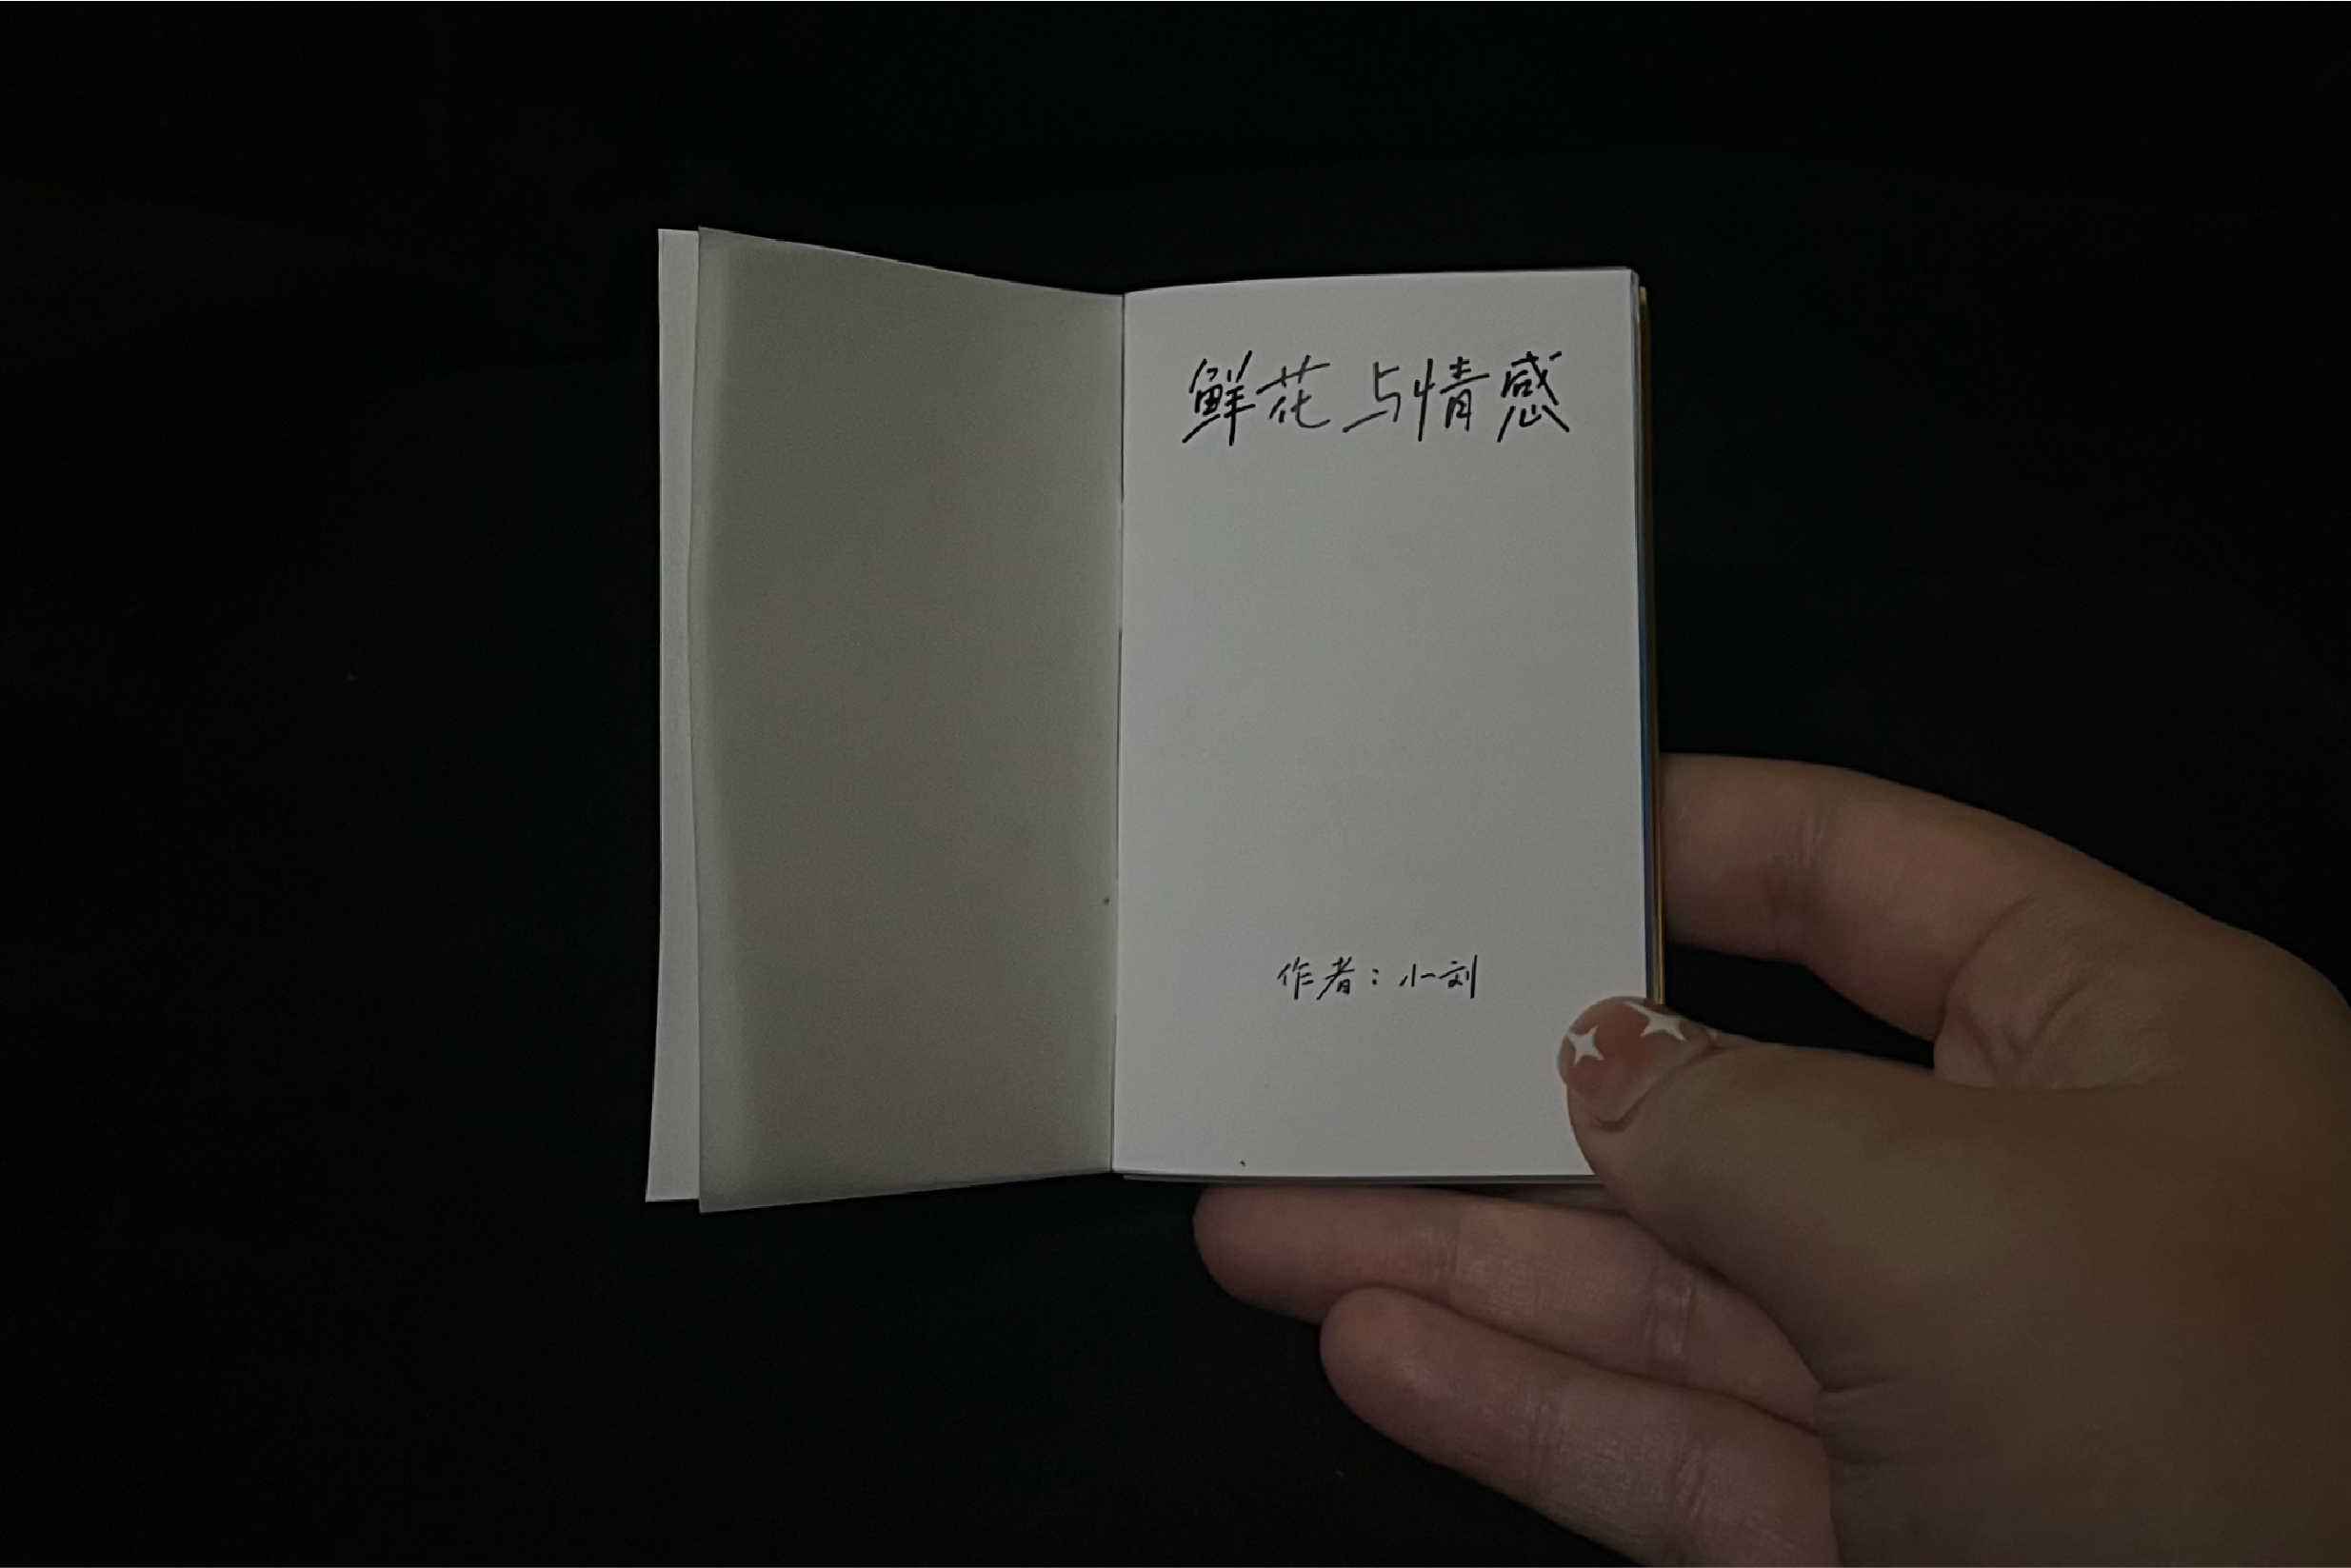 鲜花与情感
作者：小刘